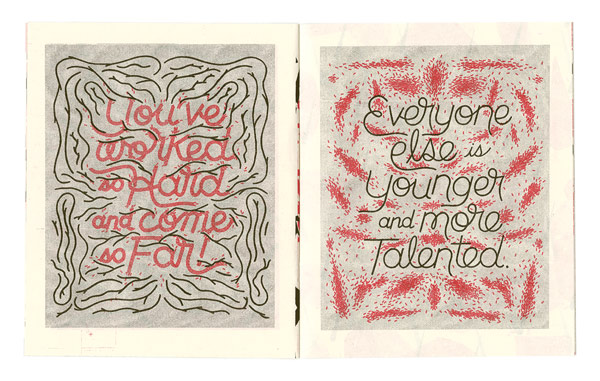 You've
worked
so Hard
and come
so Far!
Everyone
else is
Younger
and more
Talented.